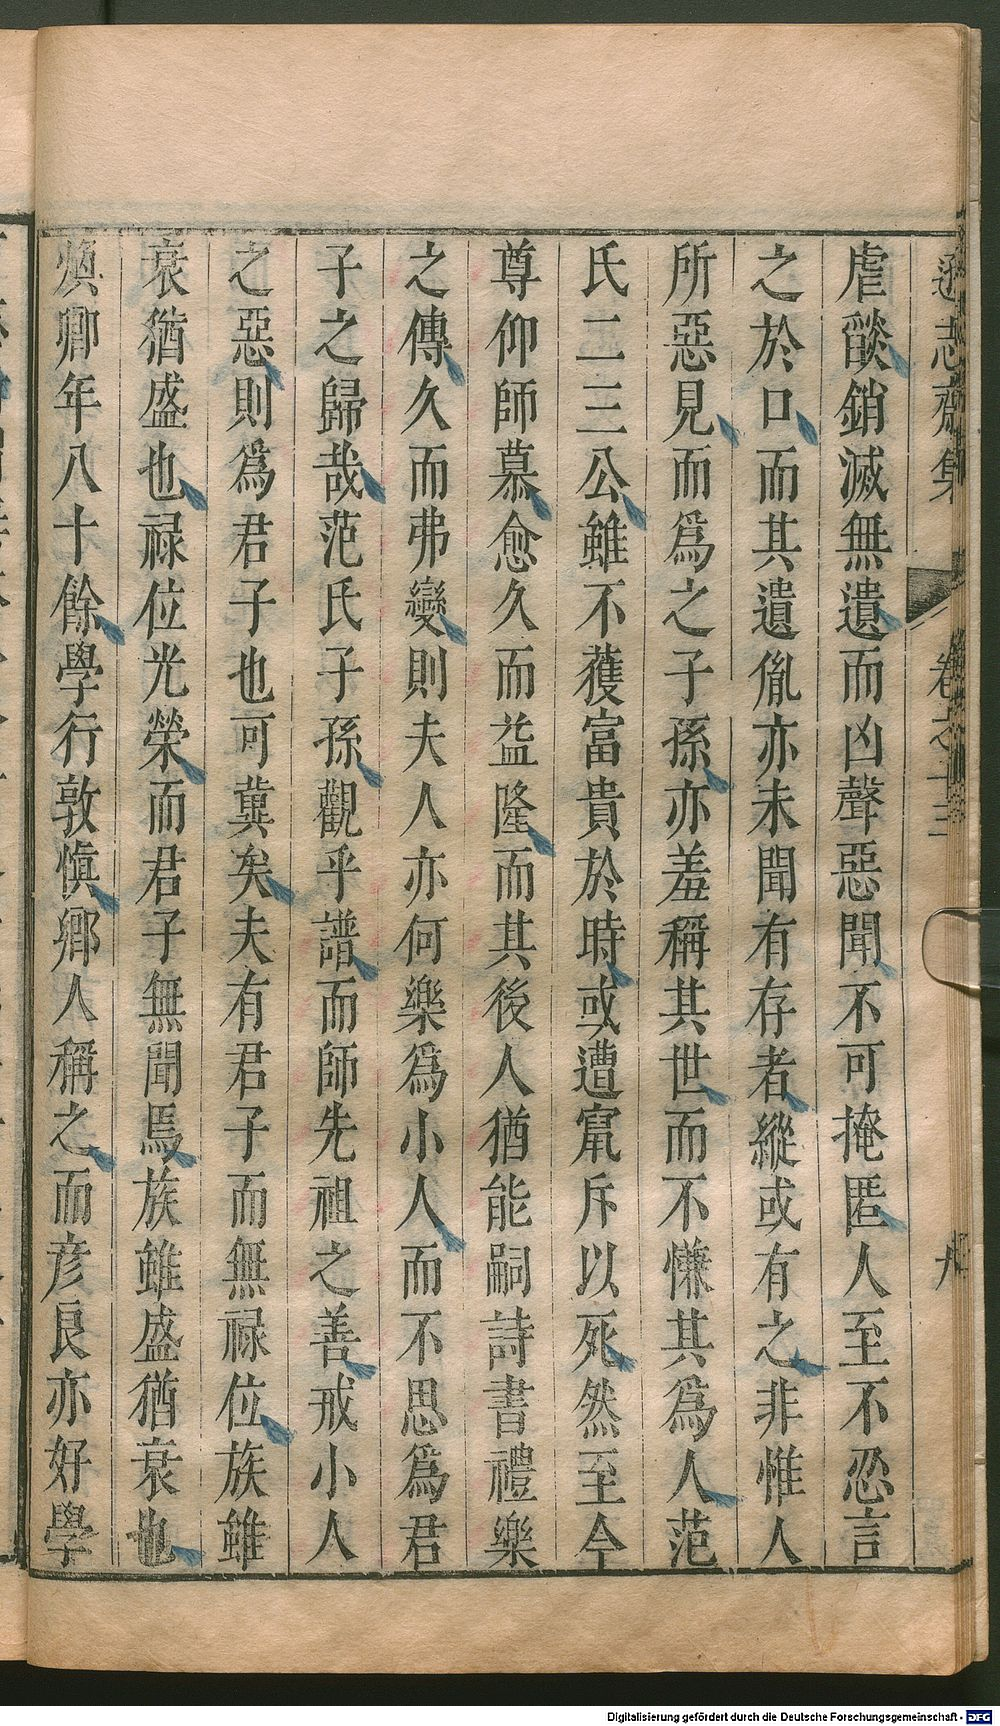 遜志齋集 卷之十三
虐燄銷滅無遺而凶聲惡聞不可掩匿人至不忍言
之於口而其遺胤亦未聞有存者縱或有之非惟人
所惡見而爲之子孫亦羞稱其世而不慊其爲人范
氏二三公雖不獲富貴於時或遭竄斥以死然至今
尊仰師慕愈久而益隆而其後人猶能嗣詩書禮樂
之傳久而弗變則夫人亦何樂爲小人而不思爲君
子之歸哉范氏子孫觀乎譜而師先祖之善戒小人
之惡則爲君子也可冀矣夫有君子而無禄位族雖
衰猶盛也禄位光榮而君子無聞焉族雖盛猶衰也
煥卿年八十餘學行敦愼鄉人稱之而彦良亦好學
Digitalisierung gefördert durch die Deutsche Forschungsgemeinschaft - DFG